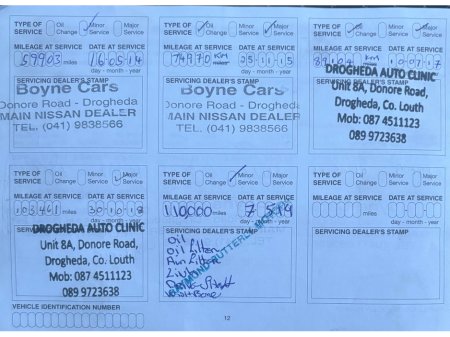 TYPE OF SERVICE Oil Change Minor Service Major Service
MILEAGE AT SERVICE DATE AT SERVICE
59903 miles 16 05 14
day - month - year
SERVICING DEALER'S STAMP
Boyne Cars
Donore Road - Drogheda
MAIN NISSAN DEALER
TEL. (041) 9838566
TYPE OF SERVICE Oil Change Minor Service Major Service
MILEAGE AT SERVICE DATE AT SERVICE
74970 km 25 11 15
day - month - year
SERVICING DEALER'S STAMP
Boyne Cars
Donore Road - Drogheda
MAIN NISSAN DEALER
TEL. (041) 9838566
TYPE OF SERVICE Oil Change Minor Service Major Service
MILEAGE AT SERVICE DATE AT SERVICE
km 10 07 17
DROGHEDA AUTO CLINIC
Unit 8A, Donore Road,
Drogheda, Co. Louth
Mob: 087 4511123
089 9723638
TYPE OF SERVICE Oil Change Minor Service Major Service
MILEAGE AT SERVICE DATE AT SERVICE
103461 miles 30 10 18
day - month - year
DROGHEDA AUTO CLINIC
Unit 8A, Donore Road,
Drogheda, Co. Louth
Mob: 087 4511123
089 9723638
TYPE OF SERVICE Oil Change Minor Service Major Service
MILEAGE AT SERVICE DATE AT SERVICE
110,000 miles 7 5 19
day - month - year
SERVICING DEALER'S STAMP
Oil
Oil
TYPE OF SERVICE Oil Change Minor Service Major Service
MILEAGE AT SERVICE DATE AT SERVICE
miles
day - month - year
SERVICING DEALER'S STAMP
VEHICLE IDENTIFICATION NUMBER
12